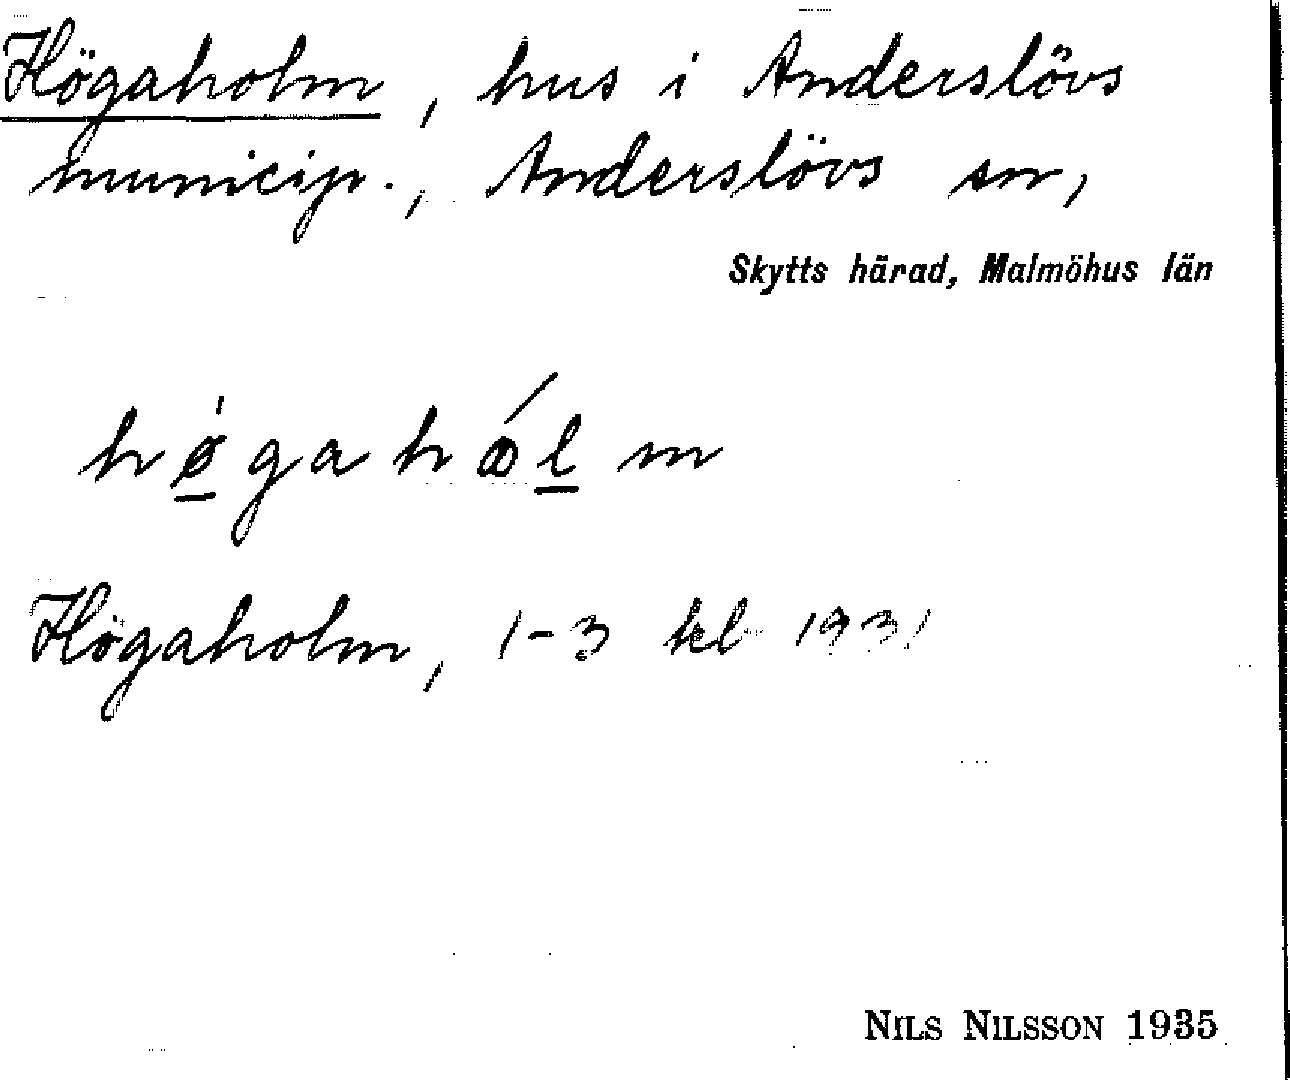 Högaholm, hus i Anderslövs
municip., Anderslövs sn,
Skytts härad, Malmöhus län
hø̱̍gahɷ́ḻm
Högaholm, 1-3 kl 1931
NILS NILSSON 1935